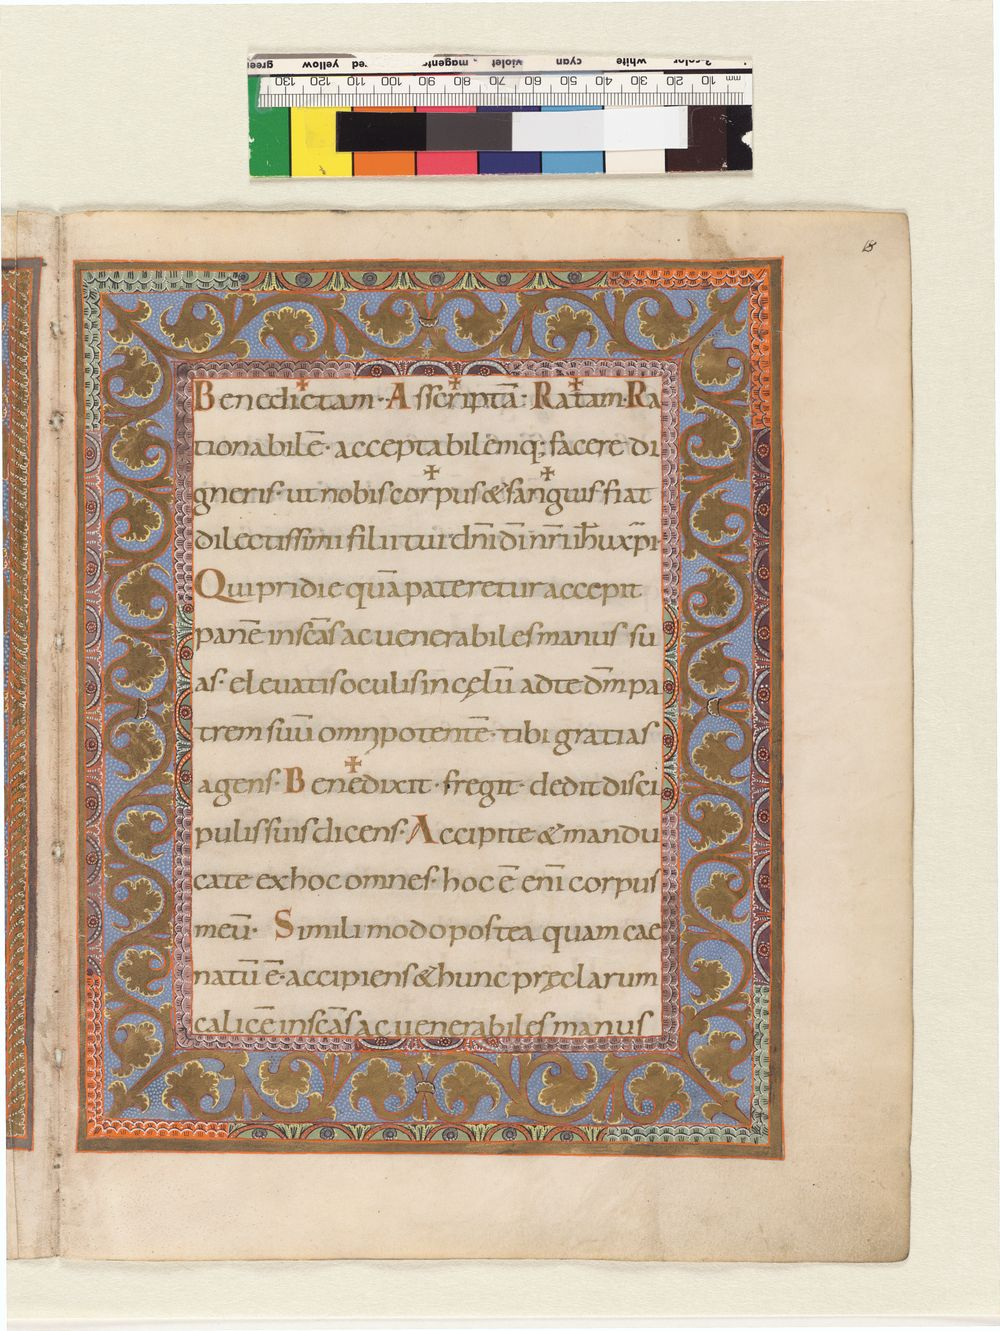 mm 10 20 30 40 50 60 70 80 90 100 110 120 130
white cyan violet magenta yellow green
Benedic✠tam· Asscrip✠tā· Ra✠tam· Ra
tionabilē· acceptabilemq; facere di
gneris· ut nobis cor✠pus & san✠guis fiat
dilectissimi filii tui dn̄i dī nr̄i ihu xp̄i
Qui pridie quā pateretur accepit
panē in scās ac venerabiles manus su
as· elevatis oculis in cęlū ad te dm̄ pa
trem suū omnipotentē· tibi gratias
agens· Bene✠dixit· fregit· dedit disci
pulis suis dicens· Accipite & mandu
cate ex hoc omnes· hoc ē eni̅ corpus
meū· Simili modo postea quam cae
natū ē· accipiens & hunc pręclarum
calicē in scās ac venerabiles manus